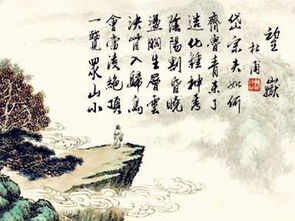 望嶽
杜甫
岱宗夫如何
齊魯青未了
造化鍾神秀
陰陽割昏曉
盪胸生層雲
決眥入歸鳥
會當淩絕頂
一覽眾山小